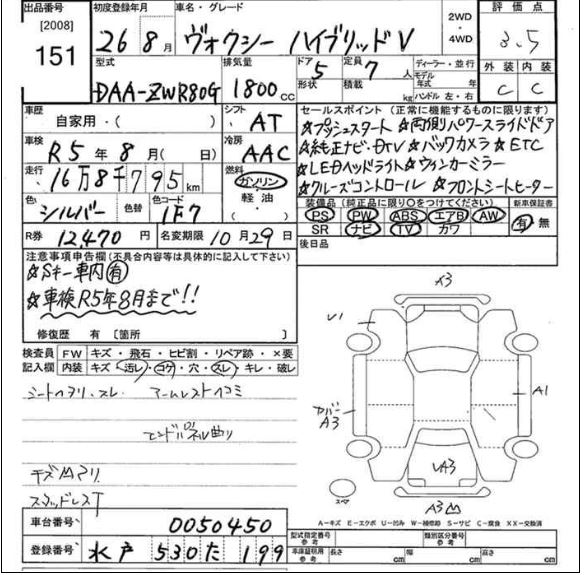 出品番号 初度登録年月 車名・グレード 2WD ・ 4WD 評価点
[2008] 151 26 8月 ヴォクシー ハイブリッドV 3.5
型式 排気量 ドア 5 定員 7人 ディーラー・並行 外装 内装
DAA-ZWR80G 1800cc 形状 積載 kg モデル年式 年式 ハンドル 左・右 C C
車歴 自家用・( ) シフト AT セールスポイント (正常に機能するものに限ります)
☆プッシュスタート ☆両側パワースライドドア
車検 R5年8月( 日) 冷房 AAC ☆純正ナビ・DTV ☆バックカメラ ☆ETC
走行 16万8千795km 燃料 ガソリン・軽油・( ) ☆LEDヘッドライト ☆ウインカーミラー
☆クルーズコントロール ☆フロントシートヒーター
色 シルバー 色替 色コード 1F7 装備品(純正品に限り○をつけてください) 新車保証書
PS PW ABS エアB AW 有 無
SR ナビ TV カワ
R券 12,470円 名変期限 10月29日 後日品
注意事項申告欄(不具合内容等は具体的に記入して下さい)
☆Sキー車内有
☆車検R5年8月まで!!
修復歴 有[箇所 ]
検査員記入欄 FW キズ・飛石・ヒビ割・リペア跡・×要
内装 キズ・汚レ・コゲ・穴・スレ・キレ・破レ
シートヘタリ・スレ アームレストヘコミ
エンドパネル曲り
キズ凹アリ
スタッドレスT
A3
V1
A1
カバーA3
VA3
A3凹
スペア
A-キズ E-エクボ U-凹み W-補修跡 S-サビ C-腐食 XX-交換済
車台番号 0050450
登録番号 水戸 530 た 199
型式指定番号 参考 類別区分番号 参考
車庫証明用 参考 長さ cm 幅 cm 高さ cm